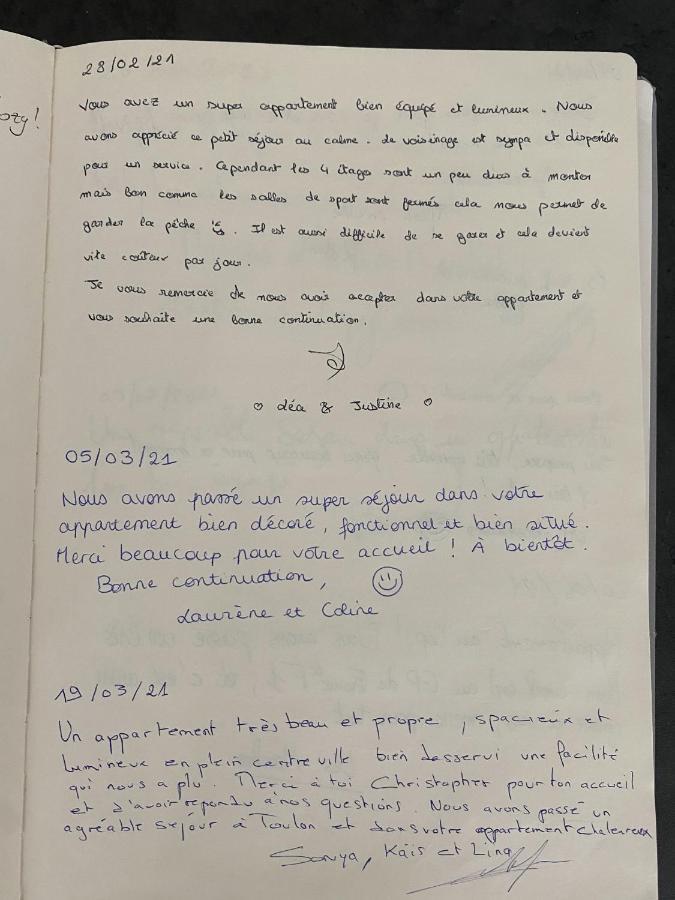 ozy!
28/02/21
Vous avez un super appartement bien équipé et lumineux. Nous
avons apprécié ce petit séjour au calme. Le voisinage est sympa et disponible
pour un service. Cependant les 4 étages sont un peu durs à monter
mais bon comme les salles de sport sont fermés cela nous permet de
garder la pêche. Il est aussi difficile de se garer et cela devient
vite coûteux par jour.
Je vous remercie de nous avoir accepter dans votre appartement et
vous souhaite une bonne continuation.
Léa & Justine
05/03/21
Nous avons passé un super séjour dans votre
appartement bien décoré, fonctionnel et bien situé.
Merci beaucoup pour votre accueil ! À bientôt.
Bonne continuation,
Laurène et Coline
19/03/21
Un appartement très beau et propre, spacieux et
lumineux en plein centre ville bien desservi une facilité
qui nous a plu. Merci à toi Christopher pour ton accueil
et d'avoir repondu à nos questions. Nous avons passé un
agréable séjour à Toulon et dans votre appartement chaleureux
Sonya, Kaïs et Lina